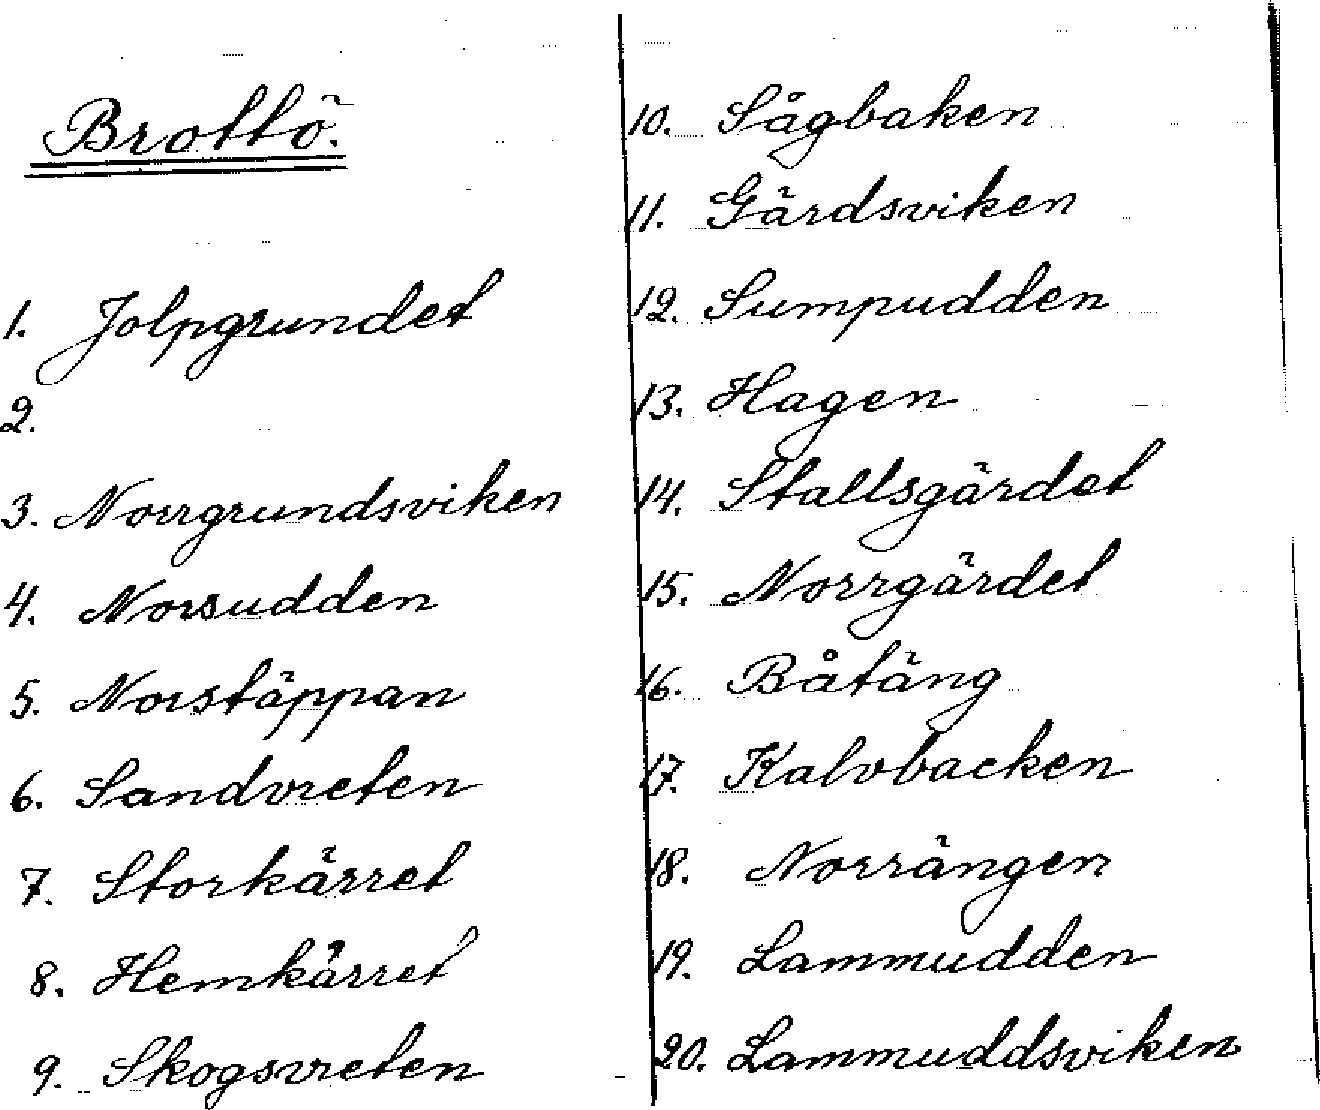 Brottö.
1. Jolpgrundet
2.
3. Norrgrundsviken
4. Norsudden
5. Norstäppan
6. Sandvreten
7. Storkärret
8. Hemkärret
9. Skogsvreten
10. Sågbaken
11. Gärdsviken
12. Sumpudden
13. Hagen
14. Stallsgärdet
15. Norrgärdet
16. Båtäng
17. Kalvbacken
18. Norrängen
19. Lammudden
20. Lammuddsviken